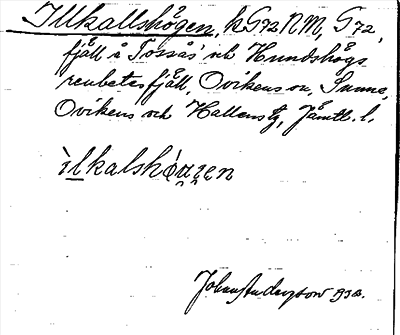 Illkallshögen, kG72NM, G72,
fjäll å Tossås' och Hundshögs
renbetesfjäll, Ovikens sn, Sunne,
Ovikens och Hallens tg, Jämtl. l.
ilkalshö̀ɡɡen
Johan Anderson 1932.